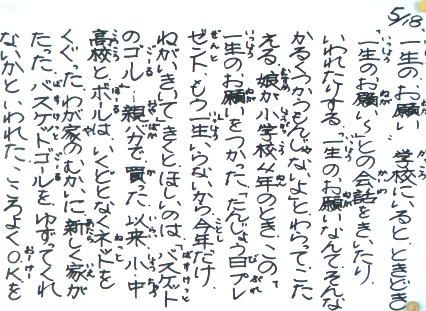 5/18. 一生のお願い 学校にいると、ときどき
「一生のお願い〜」との会話をきいたり、
いわれたりする。「一生のお願いなんてそんな
かるくつかうもんじゃないよ」とわらってこた
える。娘が小学校4年のとき、この
一生のお願いをつかった。たんじょう日プレ
ゼント、もう一生いらないから今年だけ、
ねがいきいて」きくとほしいのは「バスケット
のゴール」…親バカで買った。以来、小、中
高校とボールは、いくどとなくネットを
くぐった。わが家のむかいに新しく家が
たった。バスケットゴールをゆずってくれ
ないかといわれた。こころよくO.K.を